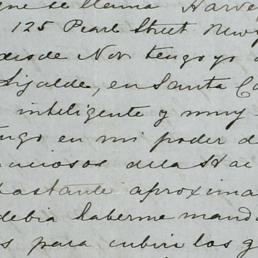 que se llama Harve
125 Pearl Street New Y
desde Nov tengo yo
Lizalde, en Santa Ca
inteligente y muy
tengo en mi poder d
de la Hac
bastante aproxima
debia haberme mand
s para cubrir los g